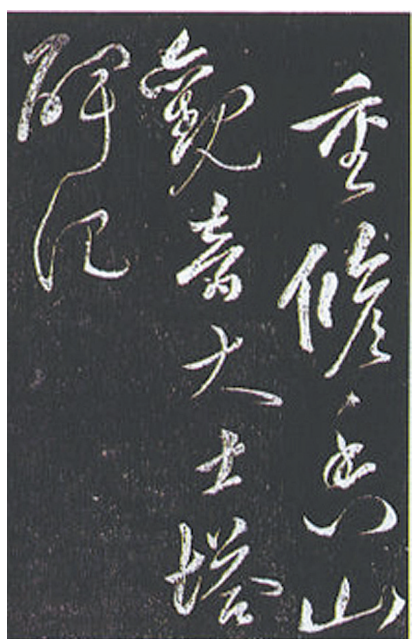 重修香山
觀音大士塔
碑記